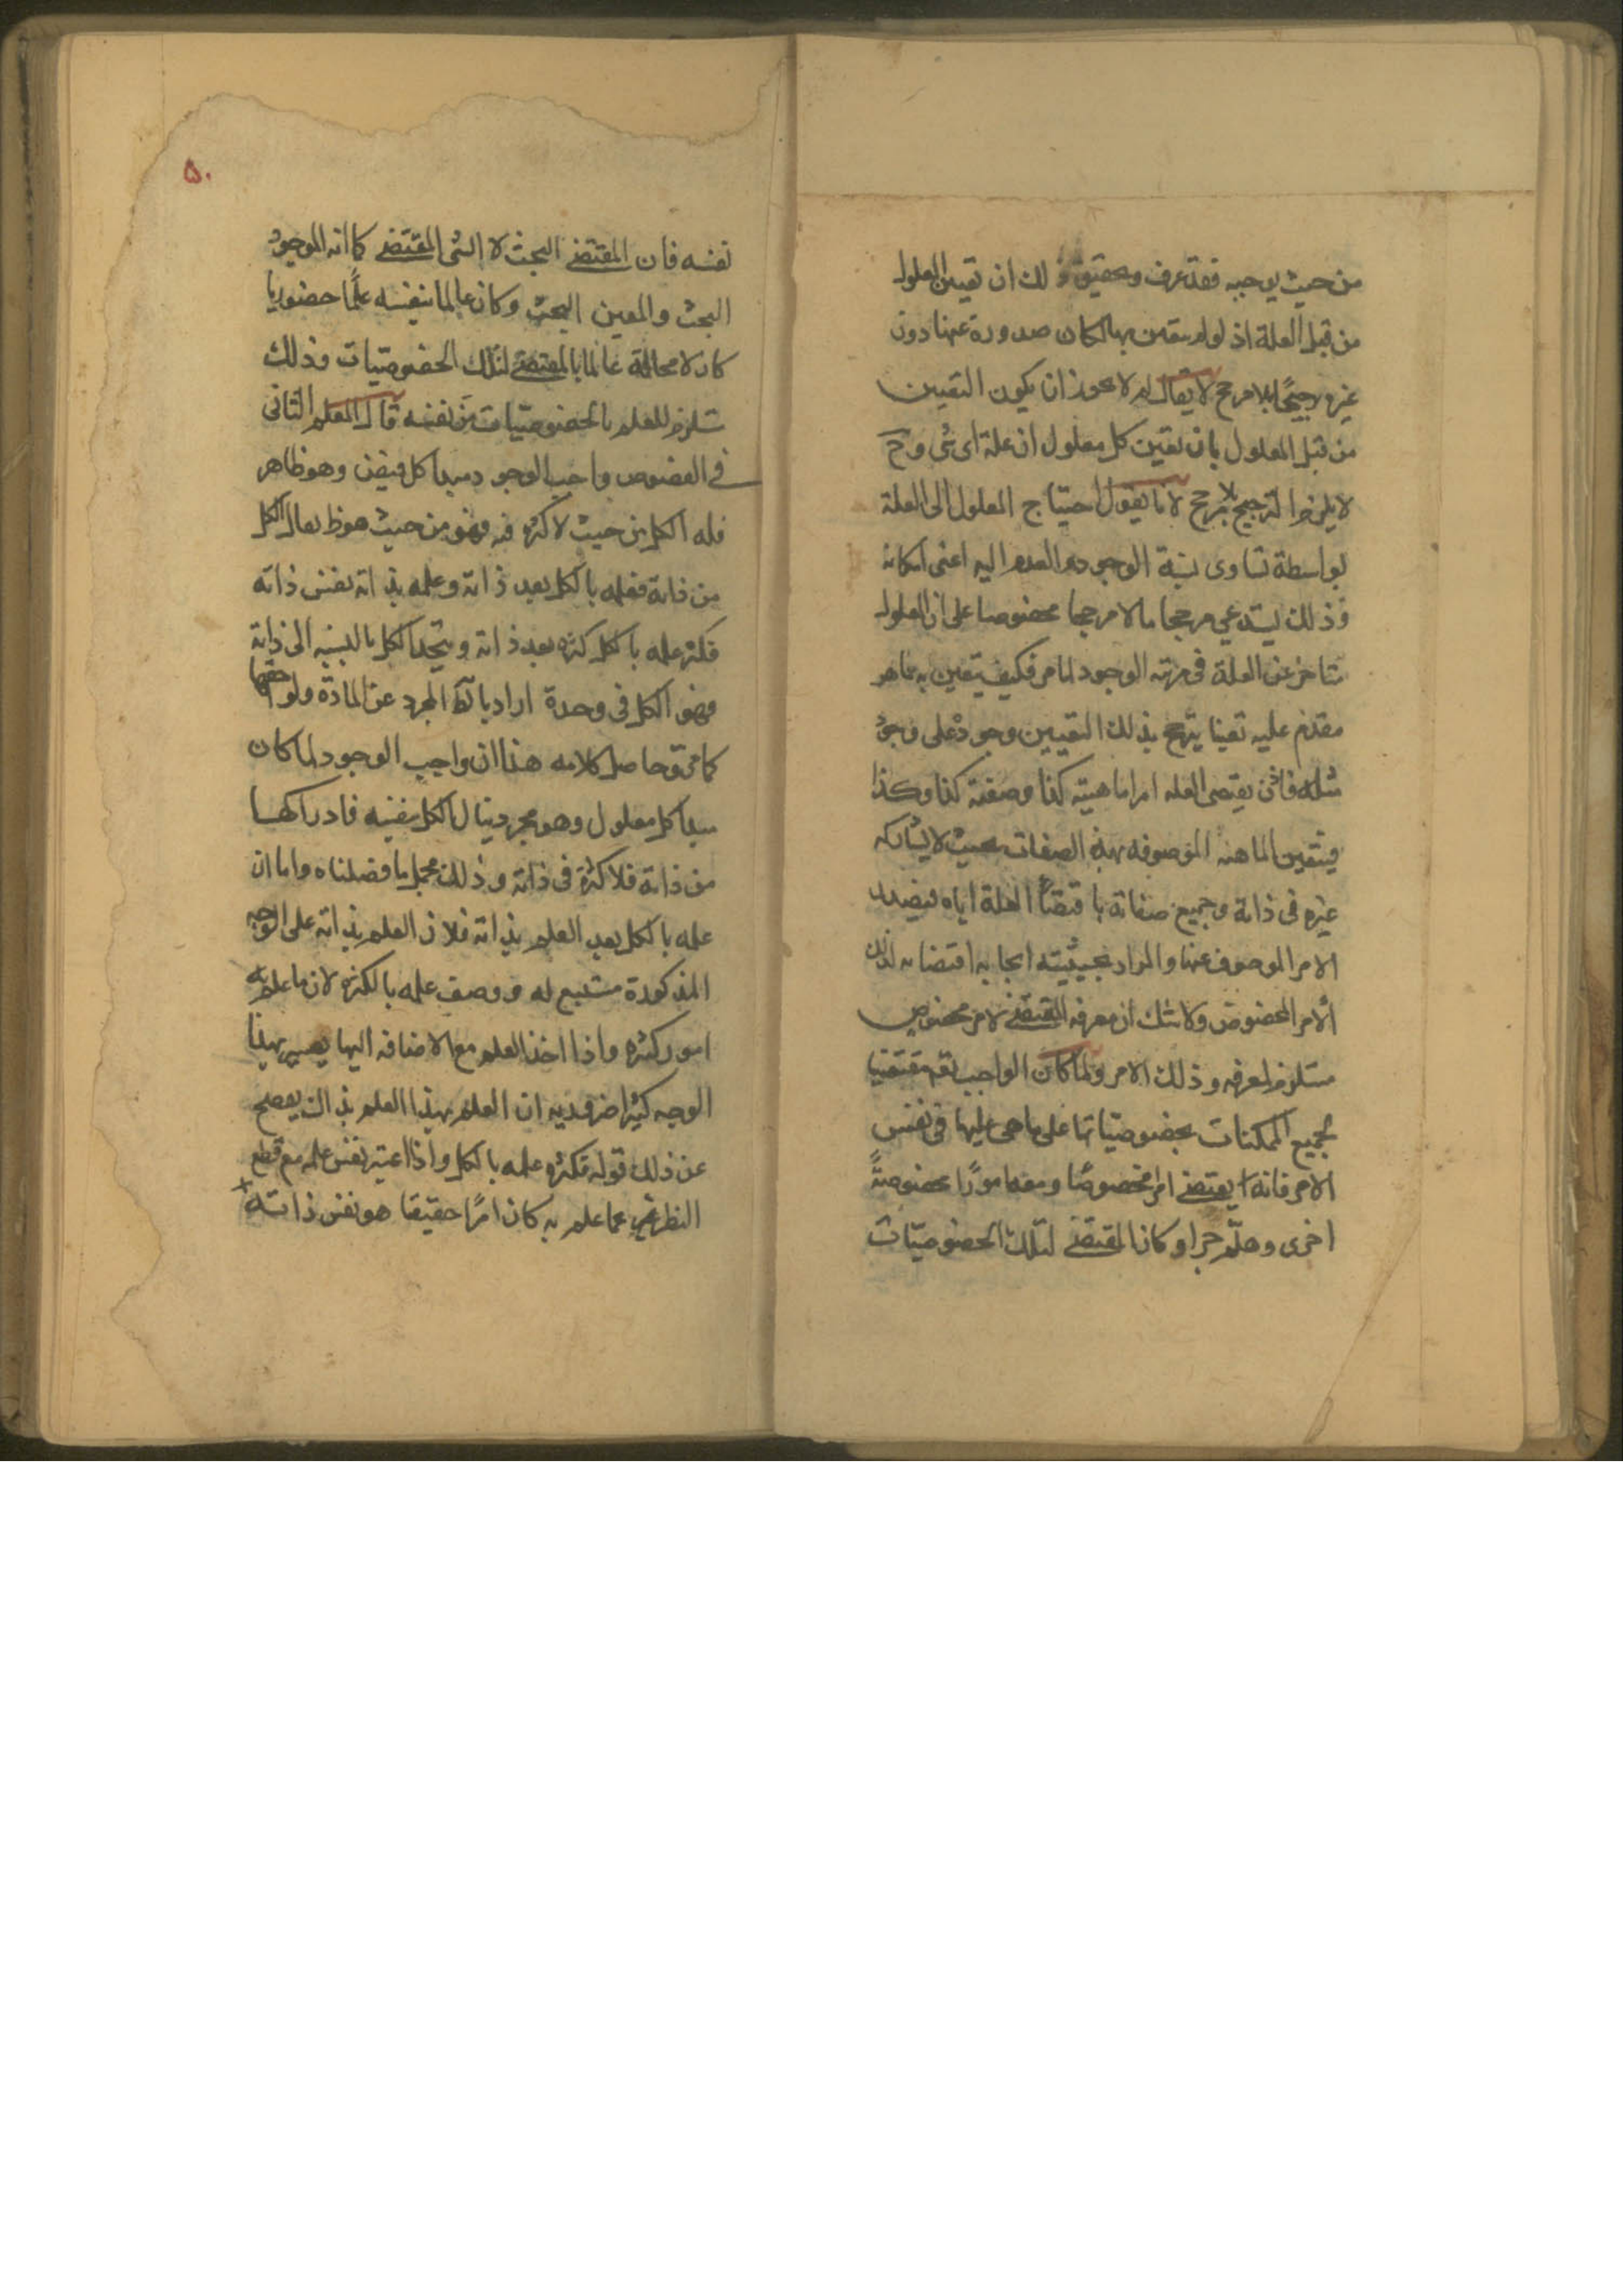 من حيث يوجبه فقد عرف وتحقيق ذلك ان تعين المعلول
من قبل العلة اذ لو لم يتعين بها لكان صدوره عنها دون
غيره ترجيحًا بلا مرجح لا يقال لم لا يجوز ان يكون التعيين
من قبل المعلول بان يقين كل معلول ان علة اى شى وح
لا يلزم الترجيح بلا مرجح لانا نقول احتياج المعلول الى العلة
بواسطة تساوى نسبة الوجود والعدم اليه اعنى امكانه
وذلك يستدعى مرجحا ما لا مرجحا مخصوصا على ان المعلول
متاخر عن العلة فى مرتبة الوجود لما مر فكيف يتعين به ما هو
مقدم عليه تعينا يترجح بذلك التعيين وجوده على وجود
مثله فاذن يقتضى العله امرا ماهيته كذا وصفته كذا وكذا
فيتعين الماهيه الموصوفه بهذه الصفات بحيث لا يشاركه
غيره فى ذاته وجميع صفاته باقتضاء العلة اياه فيصدر
الامر الموصوف عنها والمراد بحيثيته ايجابه اقتضائه لذلك
الامر المخصوص ولا شك ان معرفه المقتضى لامر مخصوص
مستلزم لمعرفه وذلك الامر ولما كان الواجب تعه مقتضيا
لجميع الممكنات بخصوصياتها على ما هى عليها فى نفس
الامر فانه يقتضى امرا مخصوصًا ومعه امورًا مخصوصةً
اخرى وهلّم جرا وكان المقتضى لتلك الخصوصيّات
۵۰
نفسه فان المقتضى البحت لا الشى المقتضى كما انه الموجود
البحت والمعين البحت وكان عالما بنفسه علمًا حضوريا
كان لا محالة عالما بالمقتضى لتلك الخصوصيّات وذلك
مستلزم للعلم بالخصوصيّات من نفسه قال المعلم الثانى
فى الفصوص واجب الوجود مبدا كل فيض وهو ظاهر
فله الكل من حيث لا كثره فيه فهو من حيث هو ظ ينال الكل
من ذاته فعلمه بالكل بعد ذاته وعلمه بذاته نفس ذاته
فكثر علمه بالكل كثره بعد ذاته ويتحد الكل بالنسبه الى ذاته
فهو الكل فى وحدة اراد بالظ المجرد عن المادة ولواحقها
كما مر وحاصل كلامه هذا ان واجب الوجود لما كان
مبدا كل معلول وهو مجرد ينال الكل بنفسه فادراكها
من ذاته فلا كثرة فى ذاته وذلك مجمل ما فصلناه واما ان
علمه بالكل بعد العلم بذاته فلان العلم بذاته على الوجه
المذكورة مستتبع له ووصف علمه بالكثره لان ما علم به
امور كثيره واذا اخذ العلم مع الاضافه اليها يصير بهذا
الوجه كثيرا ضروريه ان العلم بهذا العلم بذاك يفصح
عن ذلك قوله فكثره علمه بالكل واذا اعتبر نفس علمه مع قطع
النظر عما علم به كان امرًا حقيقا هو نفس ذاته